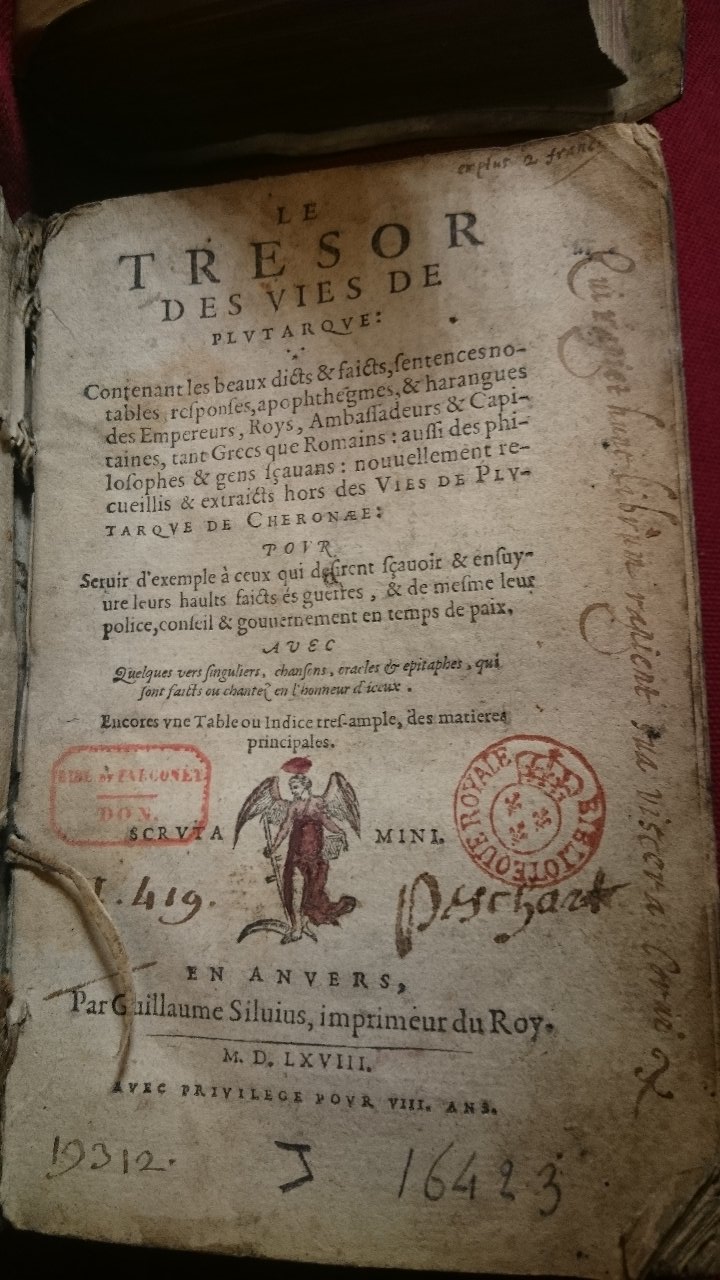 explus 2 franc
LE
TRESOR
DES VIES DE
PLVTARQVE:
Contenant les beaux dicts & faicts, sentences no-
tables, responses, apophthegmes, & harangues
des Empereurs, Roys, Ambassadeurs & Capi-
taines, tant Grecs que Romains: aussi des phi-
losophes & gens sçauans: nouuellement re-
cueillis & extraicts hors des VIES DE PLV-
TARQVE DE CHERONÆE:
POVR
Seruir d'exemple à ceux qui desirent sçauoir & ensuy-
ure leurs haults faicts és guerres, & de mesme leur
police, conseil & gouuernement en temps de paix.
AVEC
Quelques vers singuliers, chansons, oracles & epitaphes, qui
sont faicts ou chantez en l'honneur d'iceux.
Encores vne Table ou Indice tres-ample, des matieres
principales.
BIBL DE FALCONET
DON.
SCRVTA MINI.
BIBLIOTEQUE ROYALE
J. 419.
Deschart
EN ANVERS,
Par Guillaume Siluius, imprimeur du Roy.
M. D. LXVIII.
AVEC PRIVILEGE POVR VIII. ANS.
19312.
J
16423
Qui rapiet hunc librum rapient sua viscera Corui